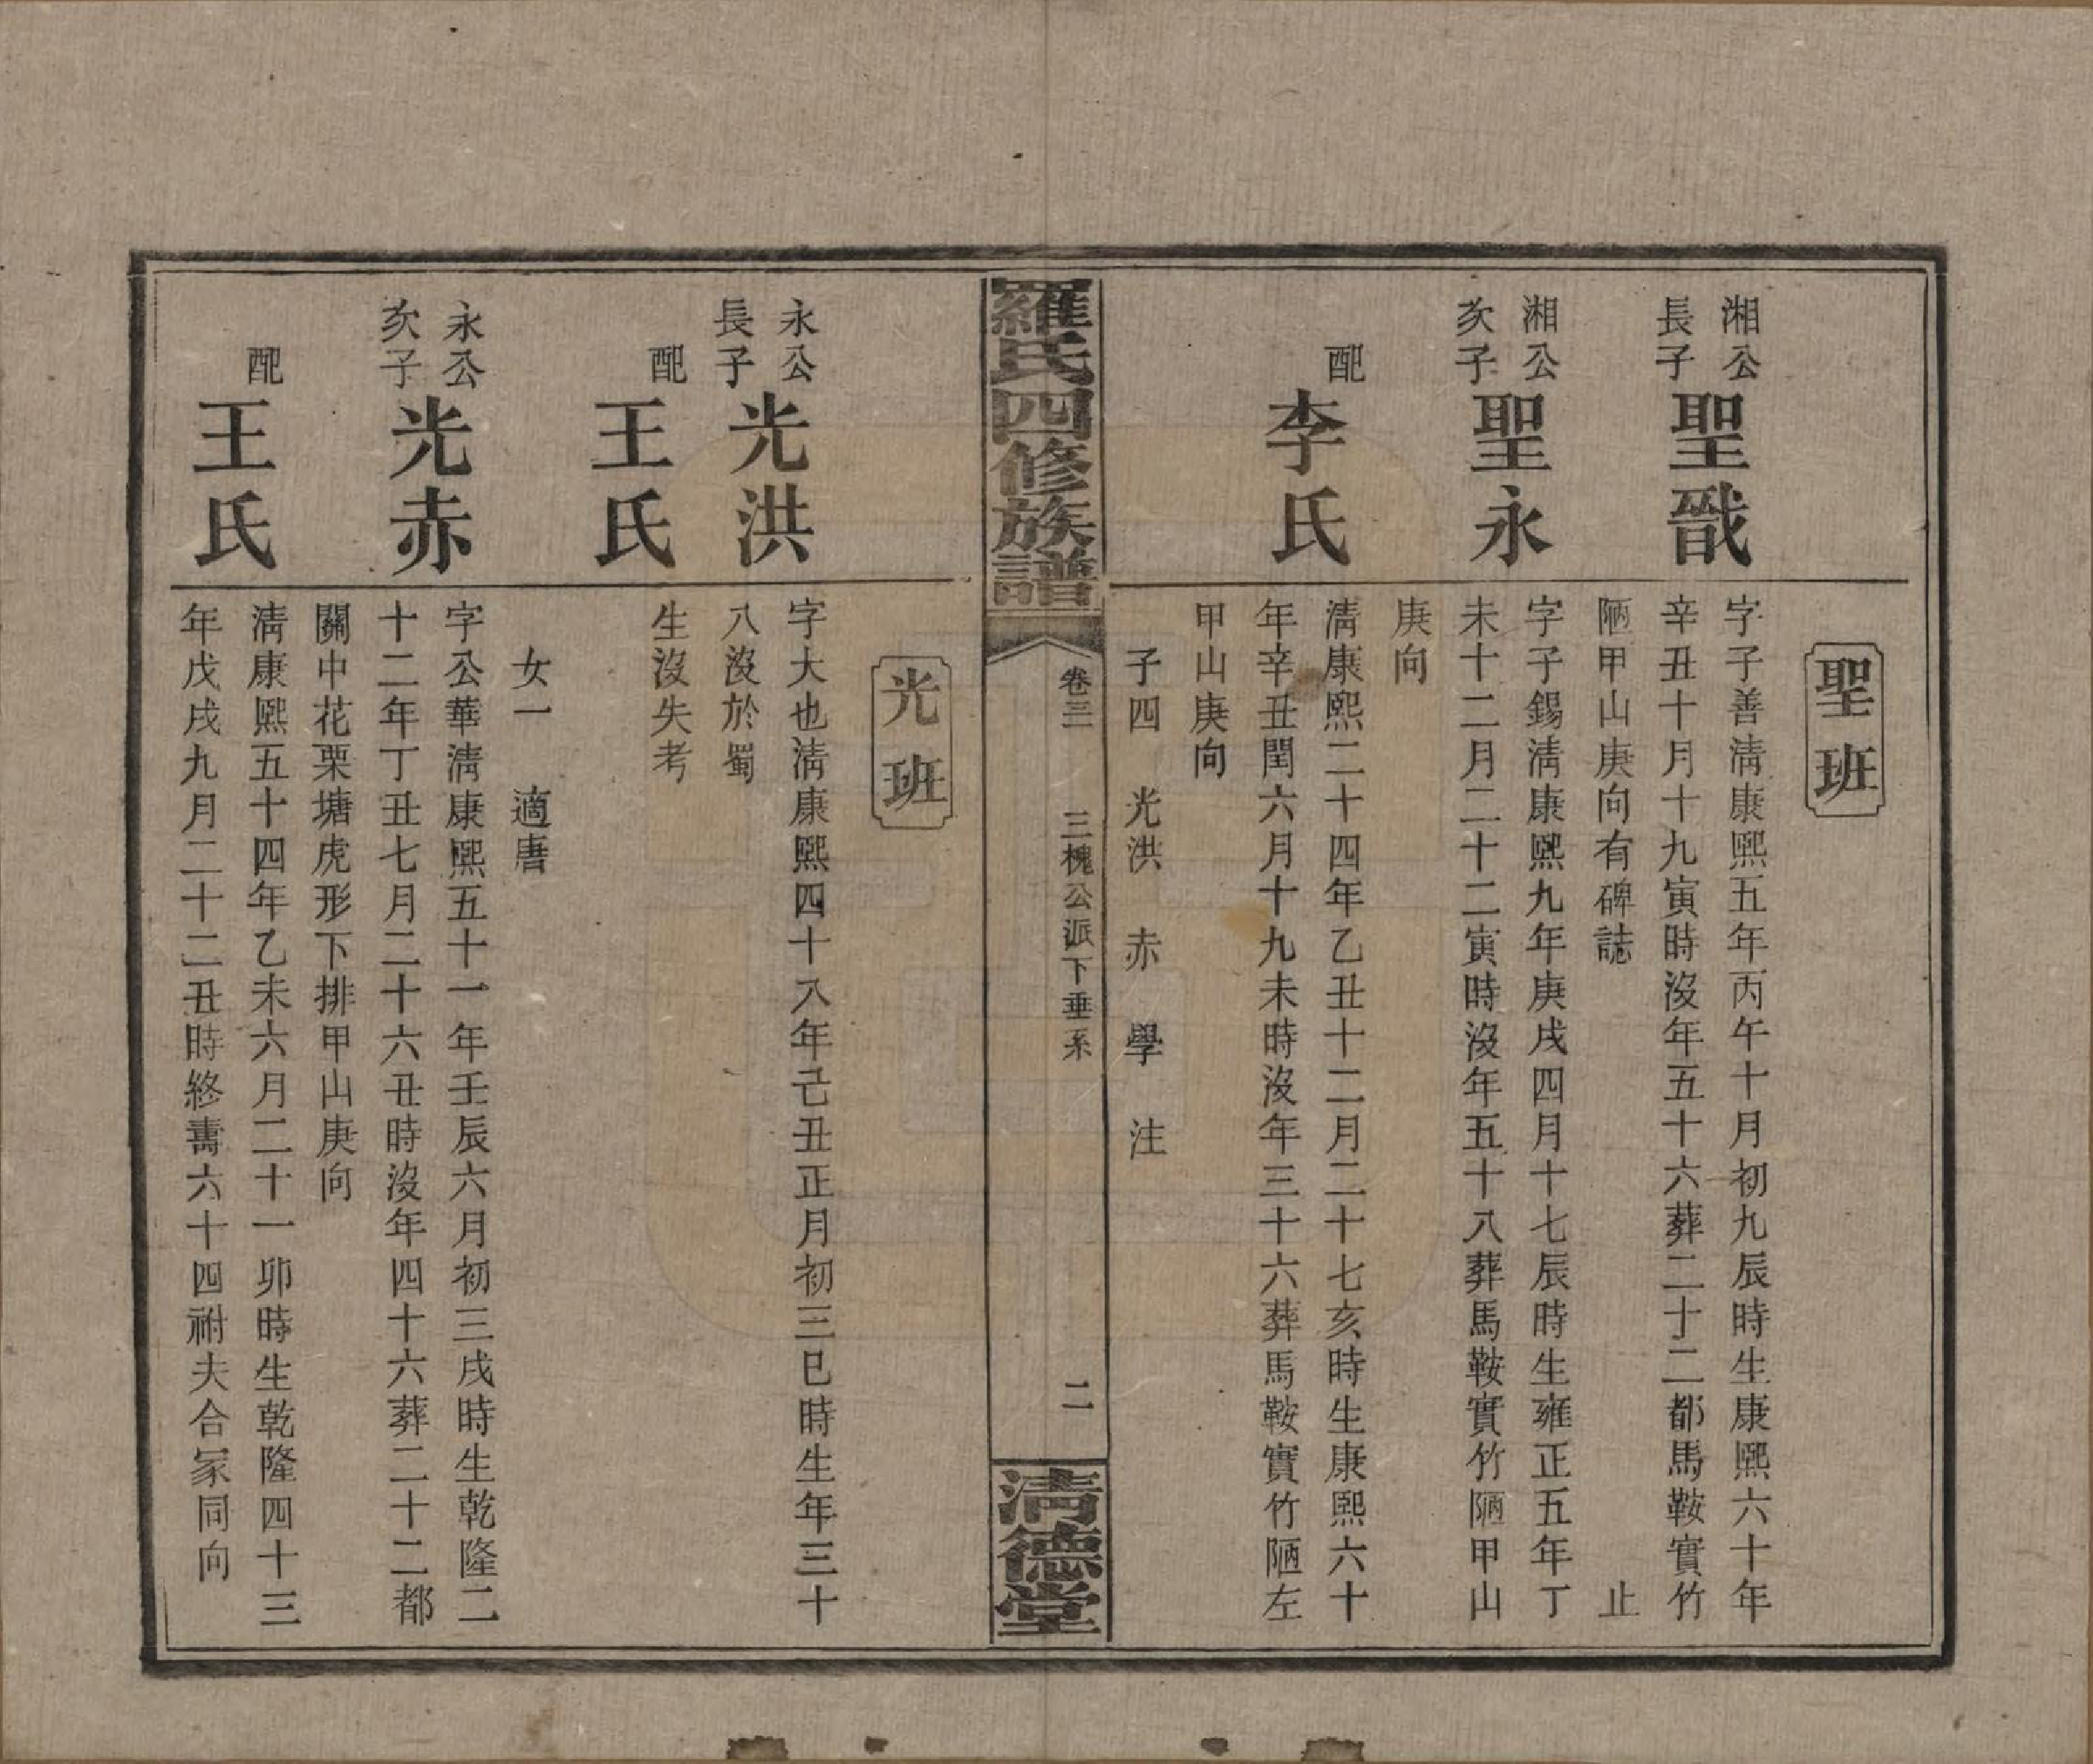 聖班
湘公
長子
聖戬
字子善淸康熙五年丙午十月初九辰時生康熙六十年
辛丑十月十九寅時沒年五十六葬二十二都馬鞍實竹
陋甲山庚向有碑誌 止
湘公
次子
聖永
字子錫淸康熙九年庚戌四月十七辰時生雍正五年丁
未十二月二十二寅時沒年五十八葬馬鞍實竹陋甲山
庚向
配
李氏
淸康熙二十四年乙丑十二月二十七亥時生康熙六十
年辛丑閏六月十九未時沒年三十六葬馬鞍實竹陋左
甲山庚向
子四 光洪 赤 學 注
羅氏四修族譜
卷三 三槐公派下垂系 二
淸德堂
光班
永公
長子
光洪
字大也淸康熙四十八年己丑正月初三巳時生年三十
八沒於蜀
配
王氏
生沒失考
女一 適唐
永公
次子
光赤
字公華淸康熙五十一年壬辰六月初三戌時生乾隆二
十二年丁丑七月二十六丑時沒年四十六葬二十二都
關中花栗塘虎形下排甲山庚向
配
王氏
淸康熙五十四年乙未六月二十一卯時生乾隆四十三
年戊戌九月二十二丑時終壽六十四祔夫合冢同向